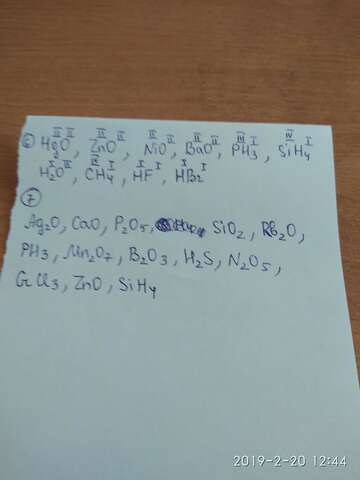 ⑥ Hg^II O^II, Zn^II O^II, Ni^II O^II, Ba^II O^II, P^IV H3^I, Si^IV H4^I
H2^I O^II, C^IV H4^I, H^I F^I, H^I Br^I
⑦
Ag2O, CaO, P2O5, SiO2, Rb2O,
PH3, Mn2O7, B2O3, H2S, N2O5,
CrCl3, ZnO, SiH4
2019-2-20 12:44